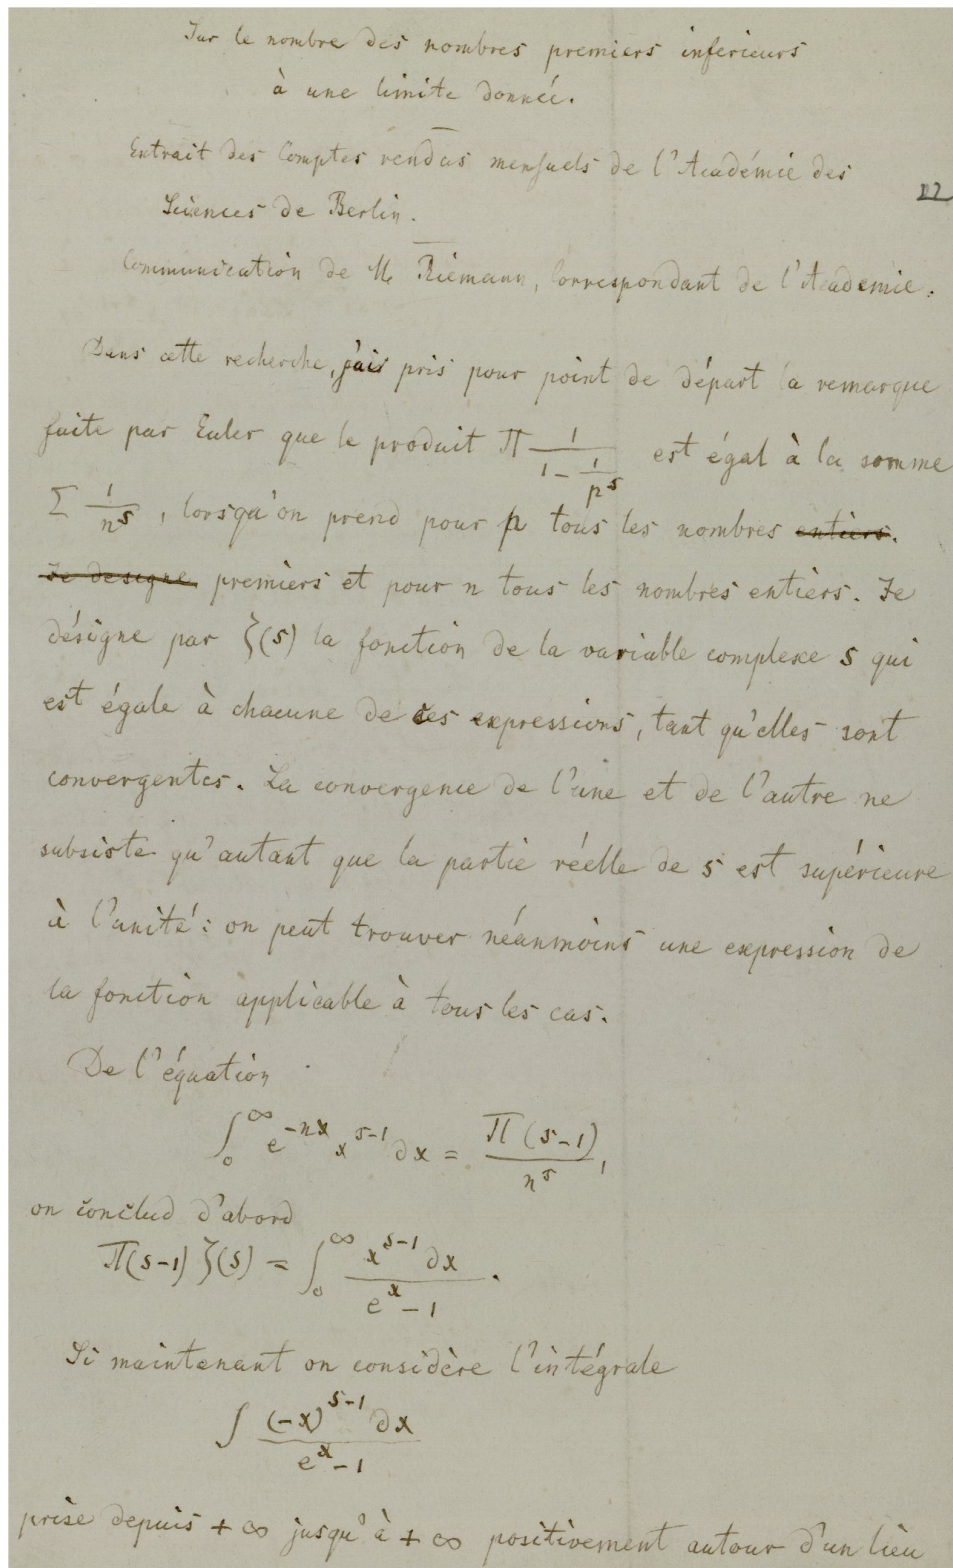 Sur le nombre des nombres premiers inferieurs
à une limite donnée.
Extrait des Comptes rendus mensuels de l'Académie des
Sciences de Berlin.
22
Communication de M. Riemann, Correspondant de l'Academie.
Dans cette recherche, j'ais pris pour point de départ la remarque
faite par Euler que le produit Π 1/(1 - 1/p^s) est égal à la somme
Σ 1/n^s, lorsqu'on prend pour p tous les nombres entiers.
Je designe premiers et pour n tous les nombres entiers. Je
désigne par ζ(s) la fonction de la variable complexe s qui
est égale à chacune de ces expressions, tant qu'elles sont
convergentes. La convergence de l'une et de l'autre ne
subsiste qu'autant que la partie réelle de s est supérieure
à l'unité: on peut trouver néanmoins une expression de
la fonction applicable à tous les cas.
De l'équation
∫_0^∞ e^{-nx} x^{s-1} ∂x = Π(s-1)/n^s,
on conclud d'abord
Π(s-1) ζ(s) = ∫_0^∞ x^{s-1} ∂x/(e^x - 1).
Si maintenant on considère l'intégrale
∫ (-x)^{s-1} ∂x/(e^x - 1)
prise depuis + ∞ jusqu'à + ∞ positivement autour d'un lieu